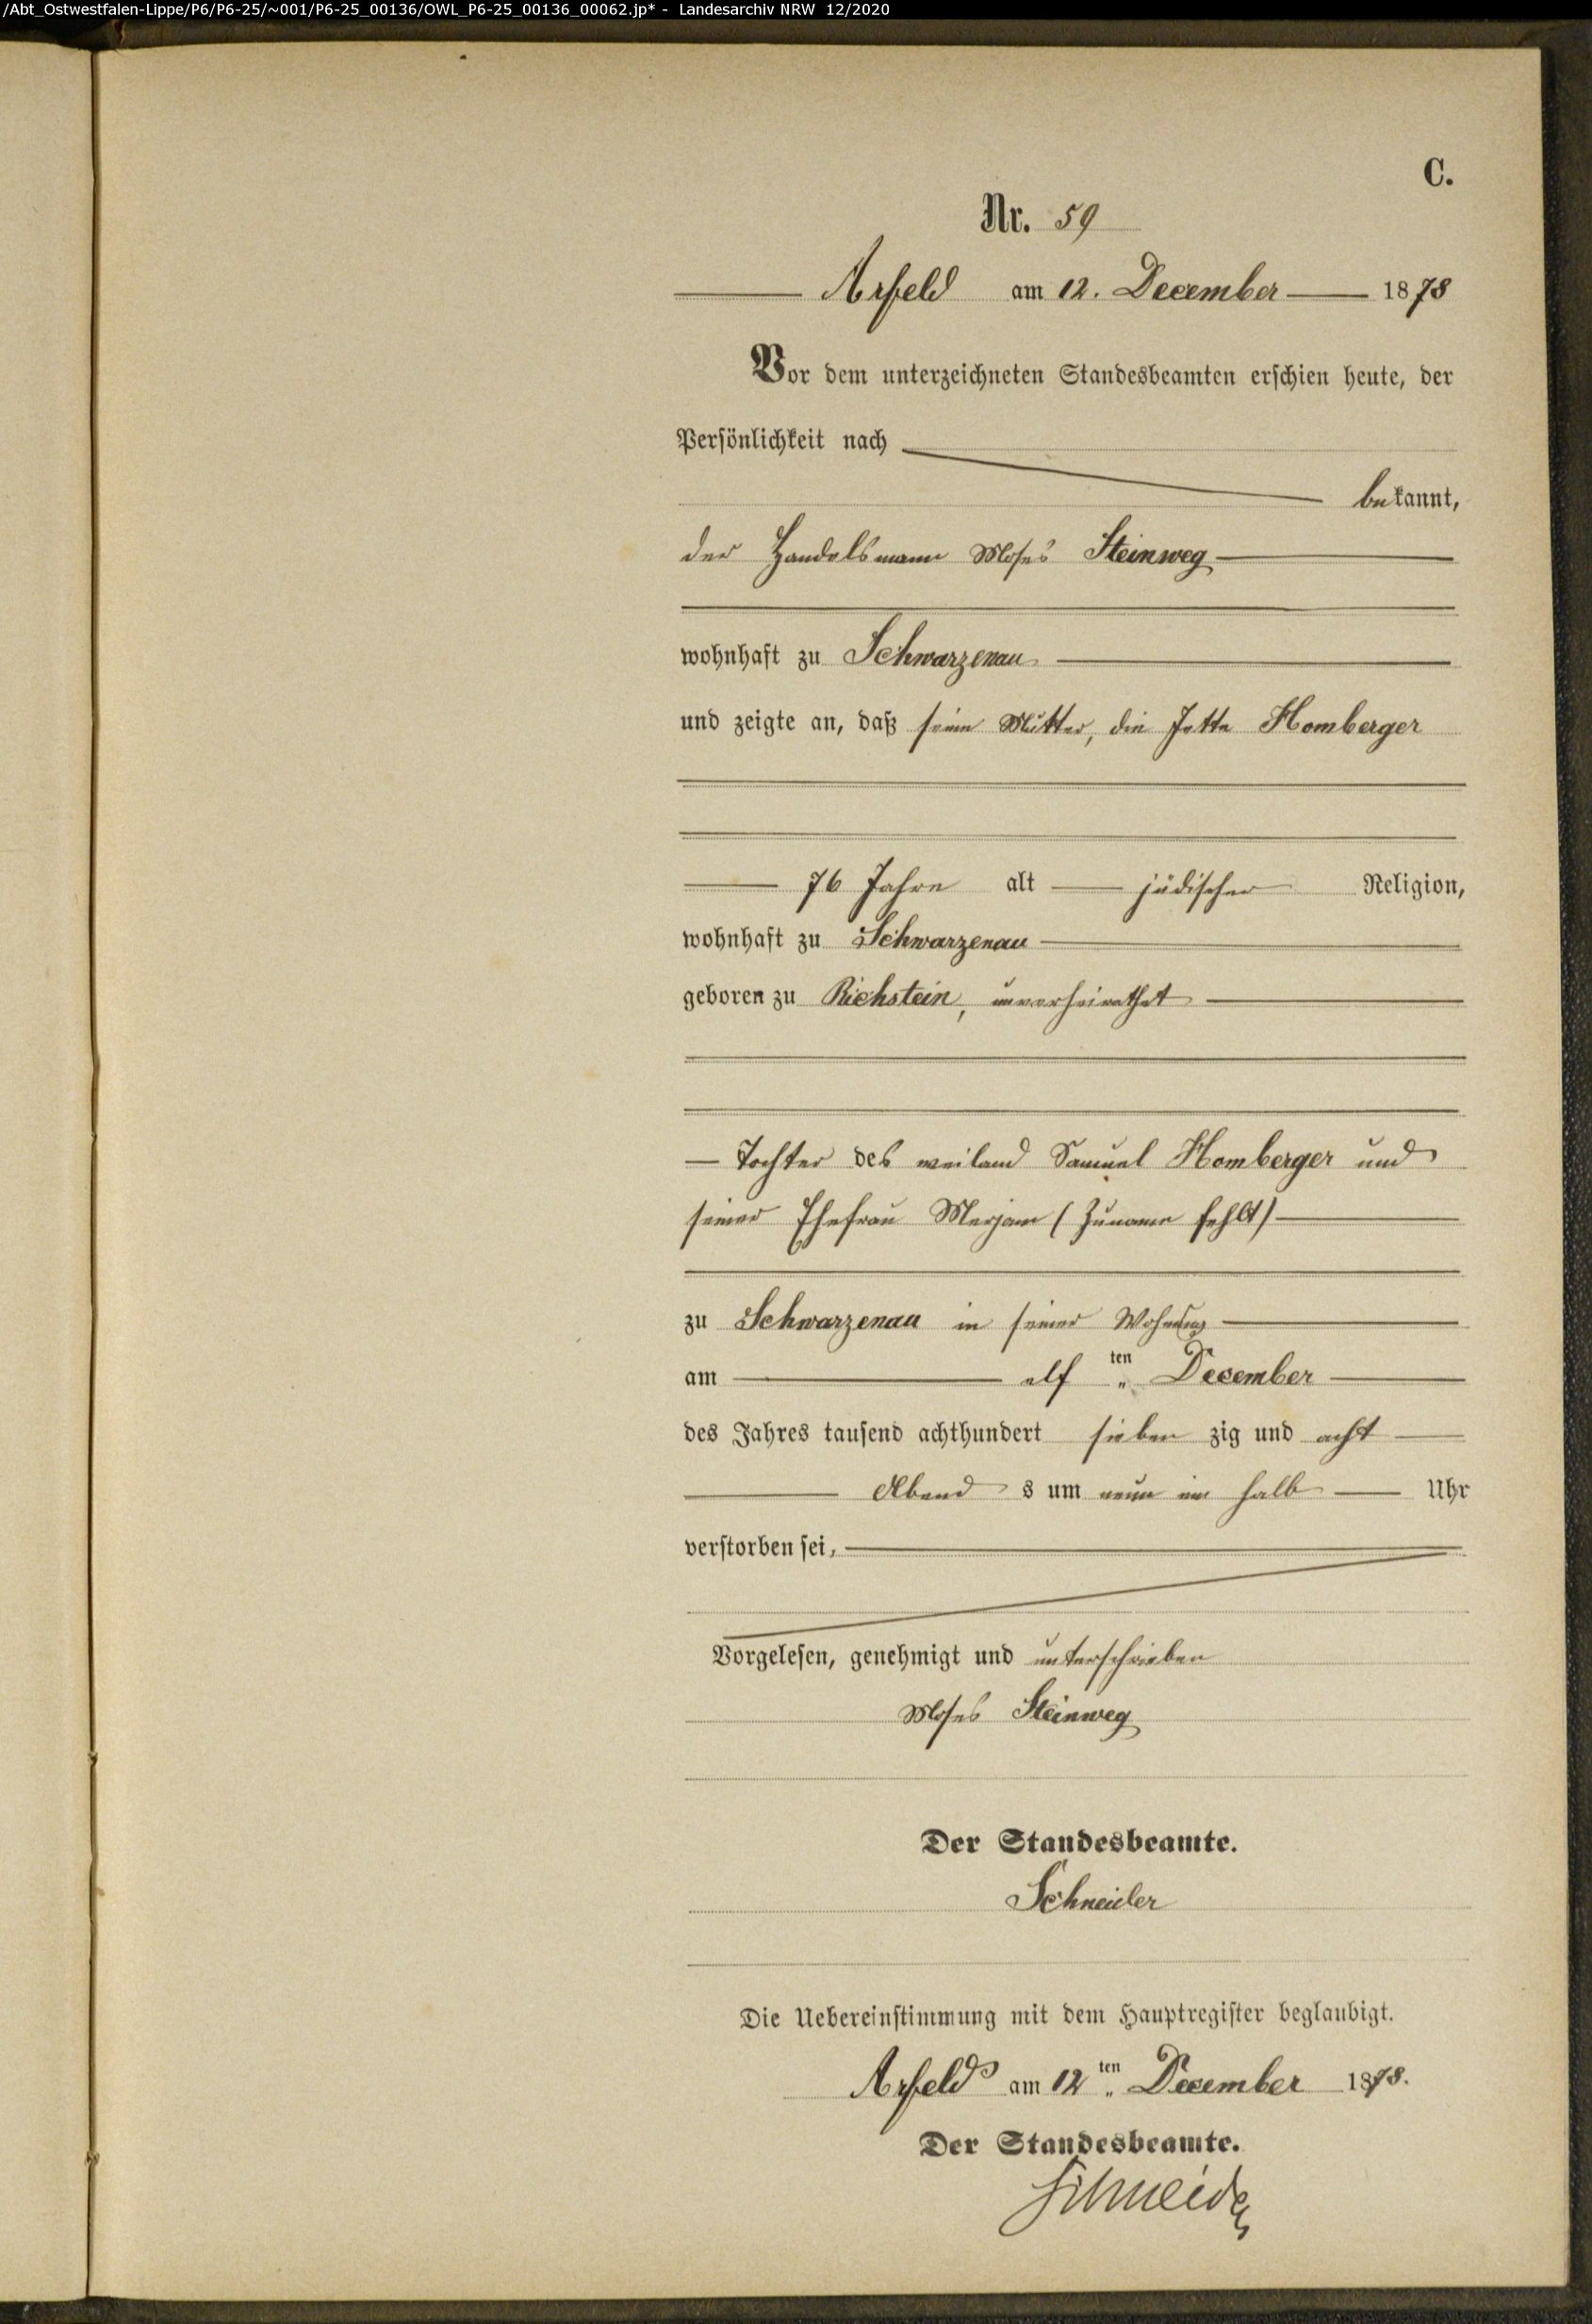 /Abt_Ostwestfalen-Lippe/P6/P6-25/~001/P6-25_00136/OWL_P6-25_00136_00062.jp* - Landesarchiv NRW 12/2020
C.
Nr. 59
Arfeld am 12. December 1878
Vor dem unterzeichneten Standesbeamten erschien heute, der
Persönlichkeit nach
bekannt,
der Handelsmann Moses Steinweg
wohnhaft zu Schwarzenau
und zeigte an, daß seine Mutter, die Jette Homberger
76 Jahre alt jüdischer Religion,
wohnhaft zu Schwarzenau
geboren zu Richstein, unverheirathet
Tochter des weiland Samuel Homberger und
seiner Ehefrau Merjam (Zuname fehlt)
zu Schwarzenau in seiner Wohnung
am elf ten December
des Jahres tausend achthundert sieben zig und acht
Abend s um neun ein halb Uhr
verstorben sei,
Vorgelesen, genehmigt und unterschrieben
Moses Steinweg
Der Standesbeamte.
Schneider
Die Uebereinstimmung mit dem Hauptregister beglaubigt.
Arfeld am 12ten December 1878.
Der Standesbeamte.
Schneider